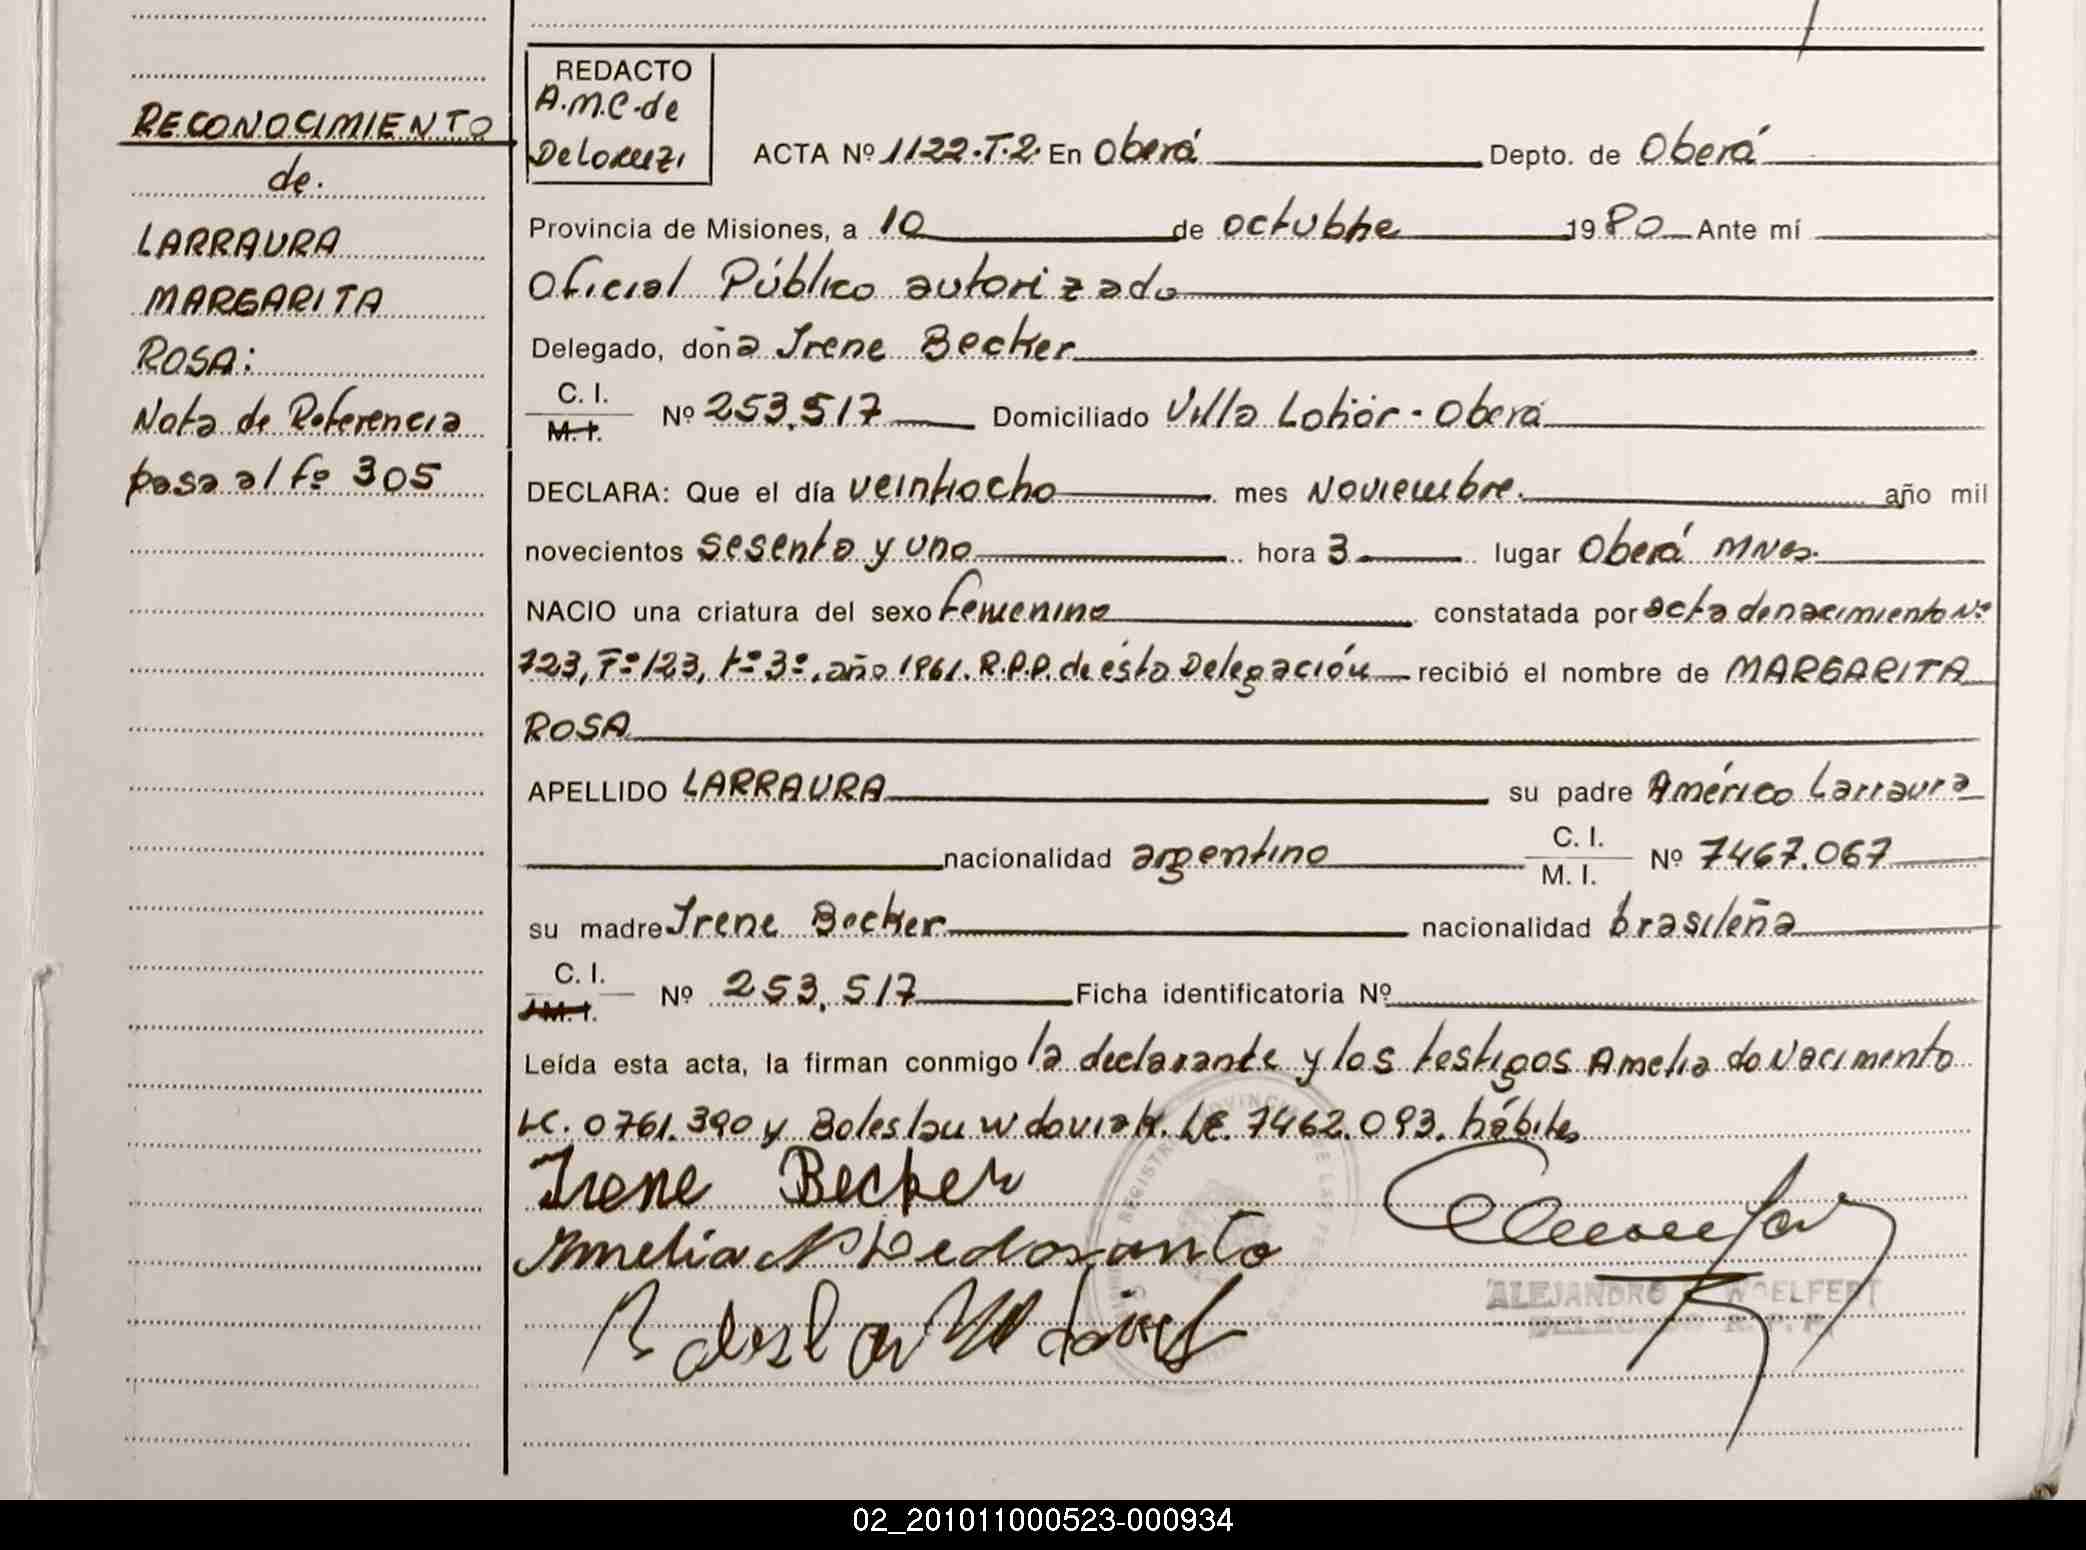 RECONOCIMIENTO
de.
LARRAURA
MARGARITA
ROSA:
Nota de Referencia
pasa al fº 305
REDACTO
A.M.C. de
Delorenzi
ACTA Nº 1122.T.2. En Oberá Depto. de Oberá
Provincia de Misiones, a 10 de octubre 1980 Ante mí
Oficial Público autorizado
Delegado, doña Irene Becker
C. I.
M. I. Nº 253.517 Domiciliado Villa - Oberá
DECLARA: Que el día veintiocho mes Noviembre. año mil
novecientos sesenta y uno hora 3 lugar Oberá Mnes.
NACIO una criatura del sexo femenino constatada por acta de nacimiento Nº
723, Fº 123, tº 3º, año 1961. R.P.P. de ésta Delegación recibió el nombre de MARGARITA
ROSA
APELLIDO LARRAURA su padre Américo Larraura
nacionalidad argentino C. I.
M. I. Nº 7467.067
su madre Irene Becker nacionalidad brasileña
C. I.
M. I. Nº 253.517 Ficha identificatoria Nº
Leída esta acta, la firman conmigo la declarante y los testigos Amelia do Nacimento
LC. 0761.390 y Boleslau Wdoviak. LE. 7462.093. hábiles
Irene Becker
Amelia
ALEJANDRO WOELFERT
02_201011000523-000934